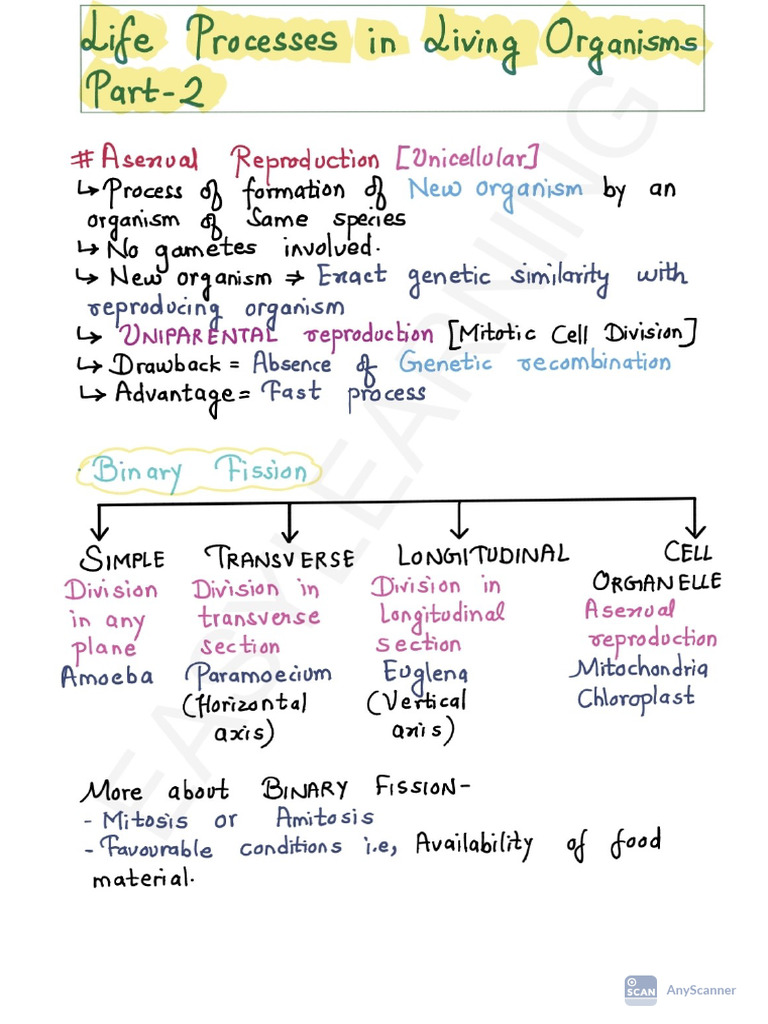 Life Processes in Living Organisms
Part-2
# Asexual Reproduction [Unicellular]
↳ Process of formation of New organism by an
organism of Same species
↳ No gametes involved.
↳ New organism ⇒ Exact genetic similarity with
reproducing organism
↳ UNIPARENTAL reproduction [Mitotic Cell Division]
↳ Drawback = Absence of Genetic recombination
↳ Advantage = Fast process
· Binary Fission
SIMPLE
Division
in any
plane
Amoeba
TRANSVERSE
Division in
transverse
section
Paramoecium
(Horizontal
axis)
LONGITUDINAL
Division in
Longitudinal
section
Euglena
(Vertical
axis)
CELL
ORGANELLE
Asexual
reproduction
Mitochondria
Chloroplast
More about BINARY FISSION-
- Mitosis or Amitosis
- Favourable conditions i.e, Availability of food
material.
EASYLEARNING
SCAN AnyScanner